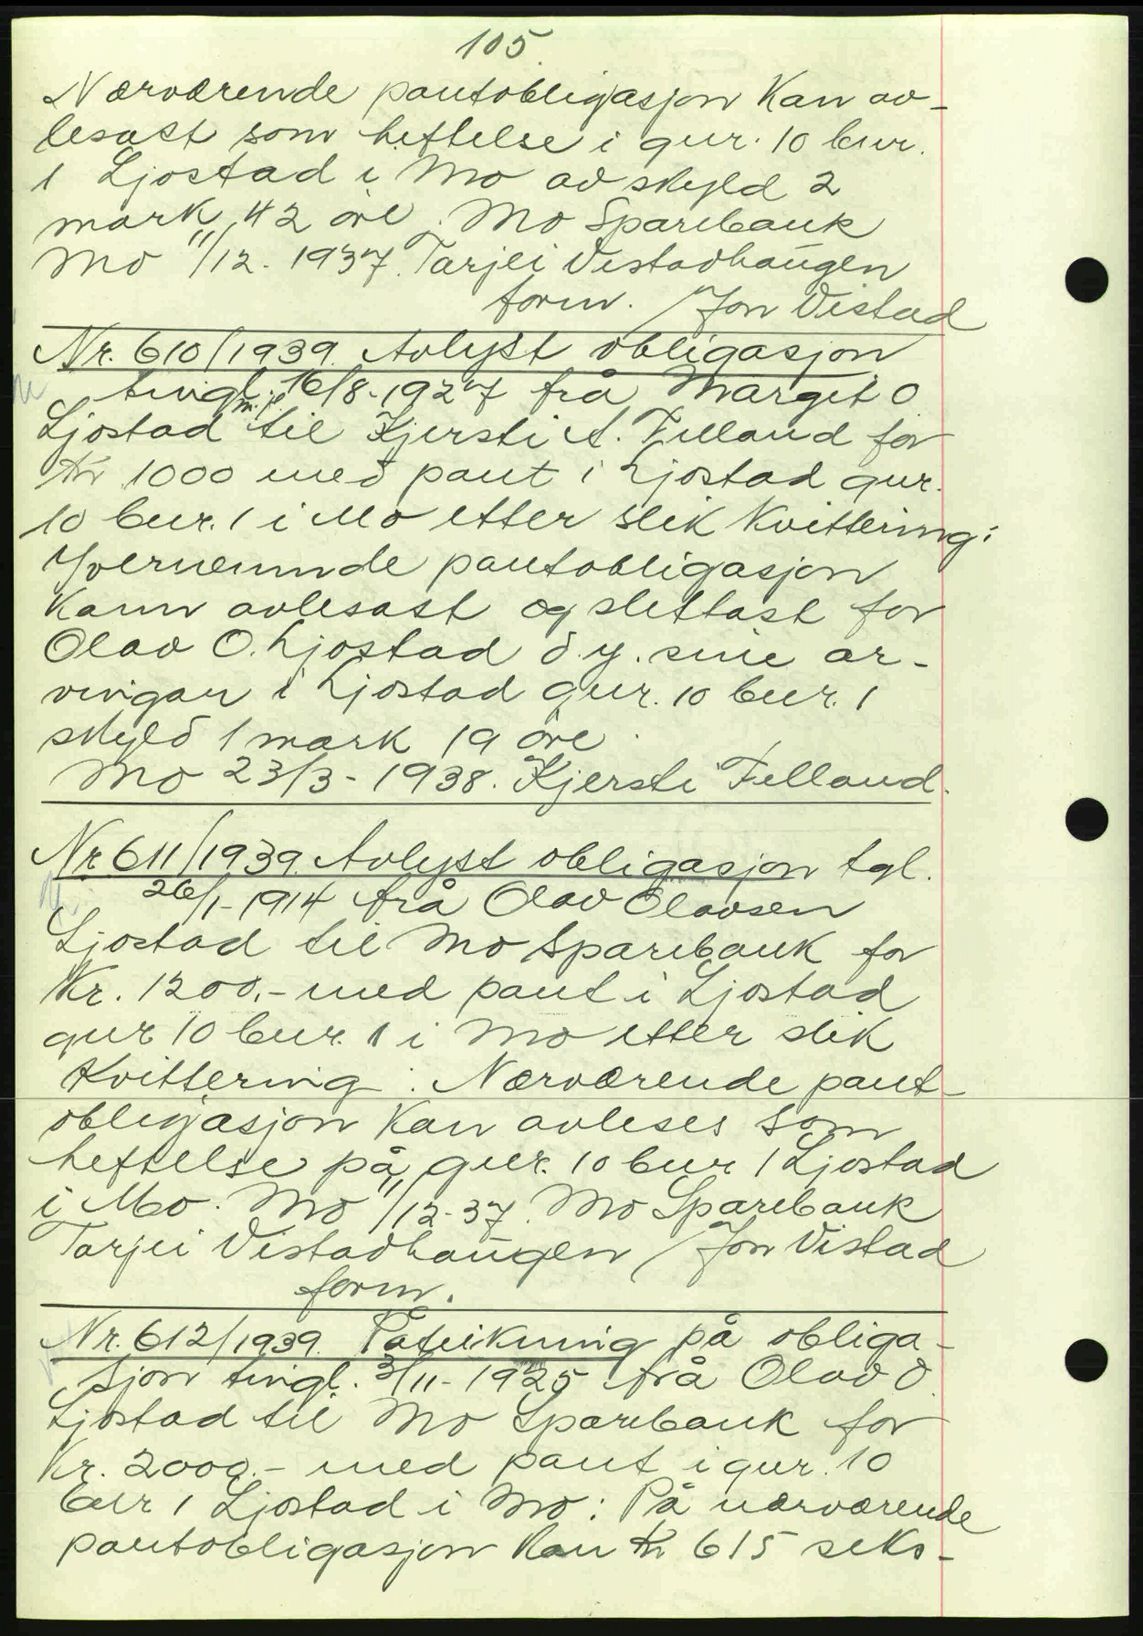 105.
Nærværende pantobligasjon kan av-
lesast som heftelse i gnr. 10 bnr.
1 Ljostad i Mo av skyld 2
mark 42 øre. Mo Sparebank
Mo 11/12. 1937. Tarjei Vistadhaugen
form. / Jon Vistad
Nr. 610/1939. Avlyst obligasjon
tingl. 16/8-1927 frå Margit O
Ljostad m. fl. til Kjersti A. Felland for
Kr 1000 med pant i Ljostad gnr.
10 bnr. 1 i Mo etter slik kvittering:
Yvernemnde pantobligasjon
kann avlesast og slettast for
Olav O. Ljostad d.y. sine ar-
vingar i Ljostad gnr. 10 bnr. 1
skyld 1 mark 19 øre.
Mo 23/3-1938. Kjersti Felland.
Nr 611/1939. Avlyst obligasjon tgl.
26/1-1914 frå Olav Olavsen
Ljostad til Mo Sparebank for
Kr. 1200.- med pant i Ljostad
gnr 10 bnr. 1 i Mo etter slik
kvittering: Nærværende pant-
obligasjon kan avleses som
heftelse på gnr. 10 bnr 1 Ljostad
i Mo. Mo 11/12-37. Mo Sparebank
Tarjei Vistadhaugen / Jon Vistad
form.
Nr. 612/1939. Påteikning på obliga-
sjon tingl. 3/11-1925 frå Olav O.
Ljostad til Mo Sparebank for
Kr. 2000.- med pant i gnr. 10
bnr 1 Ljostad i Mo: På nærværende
pantobligasjon kan kr 615 seks-